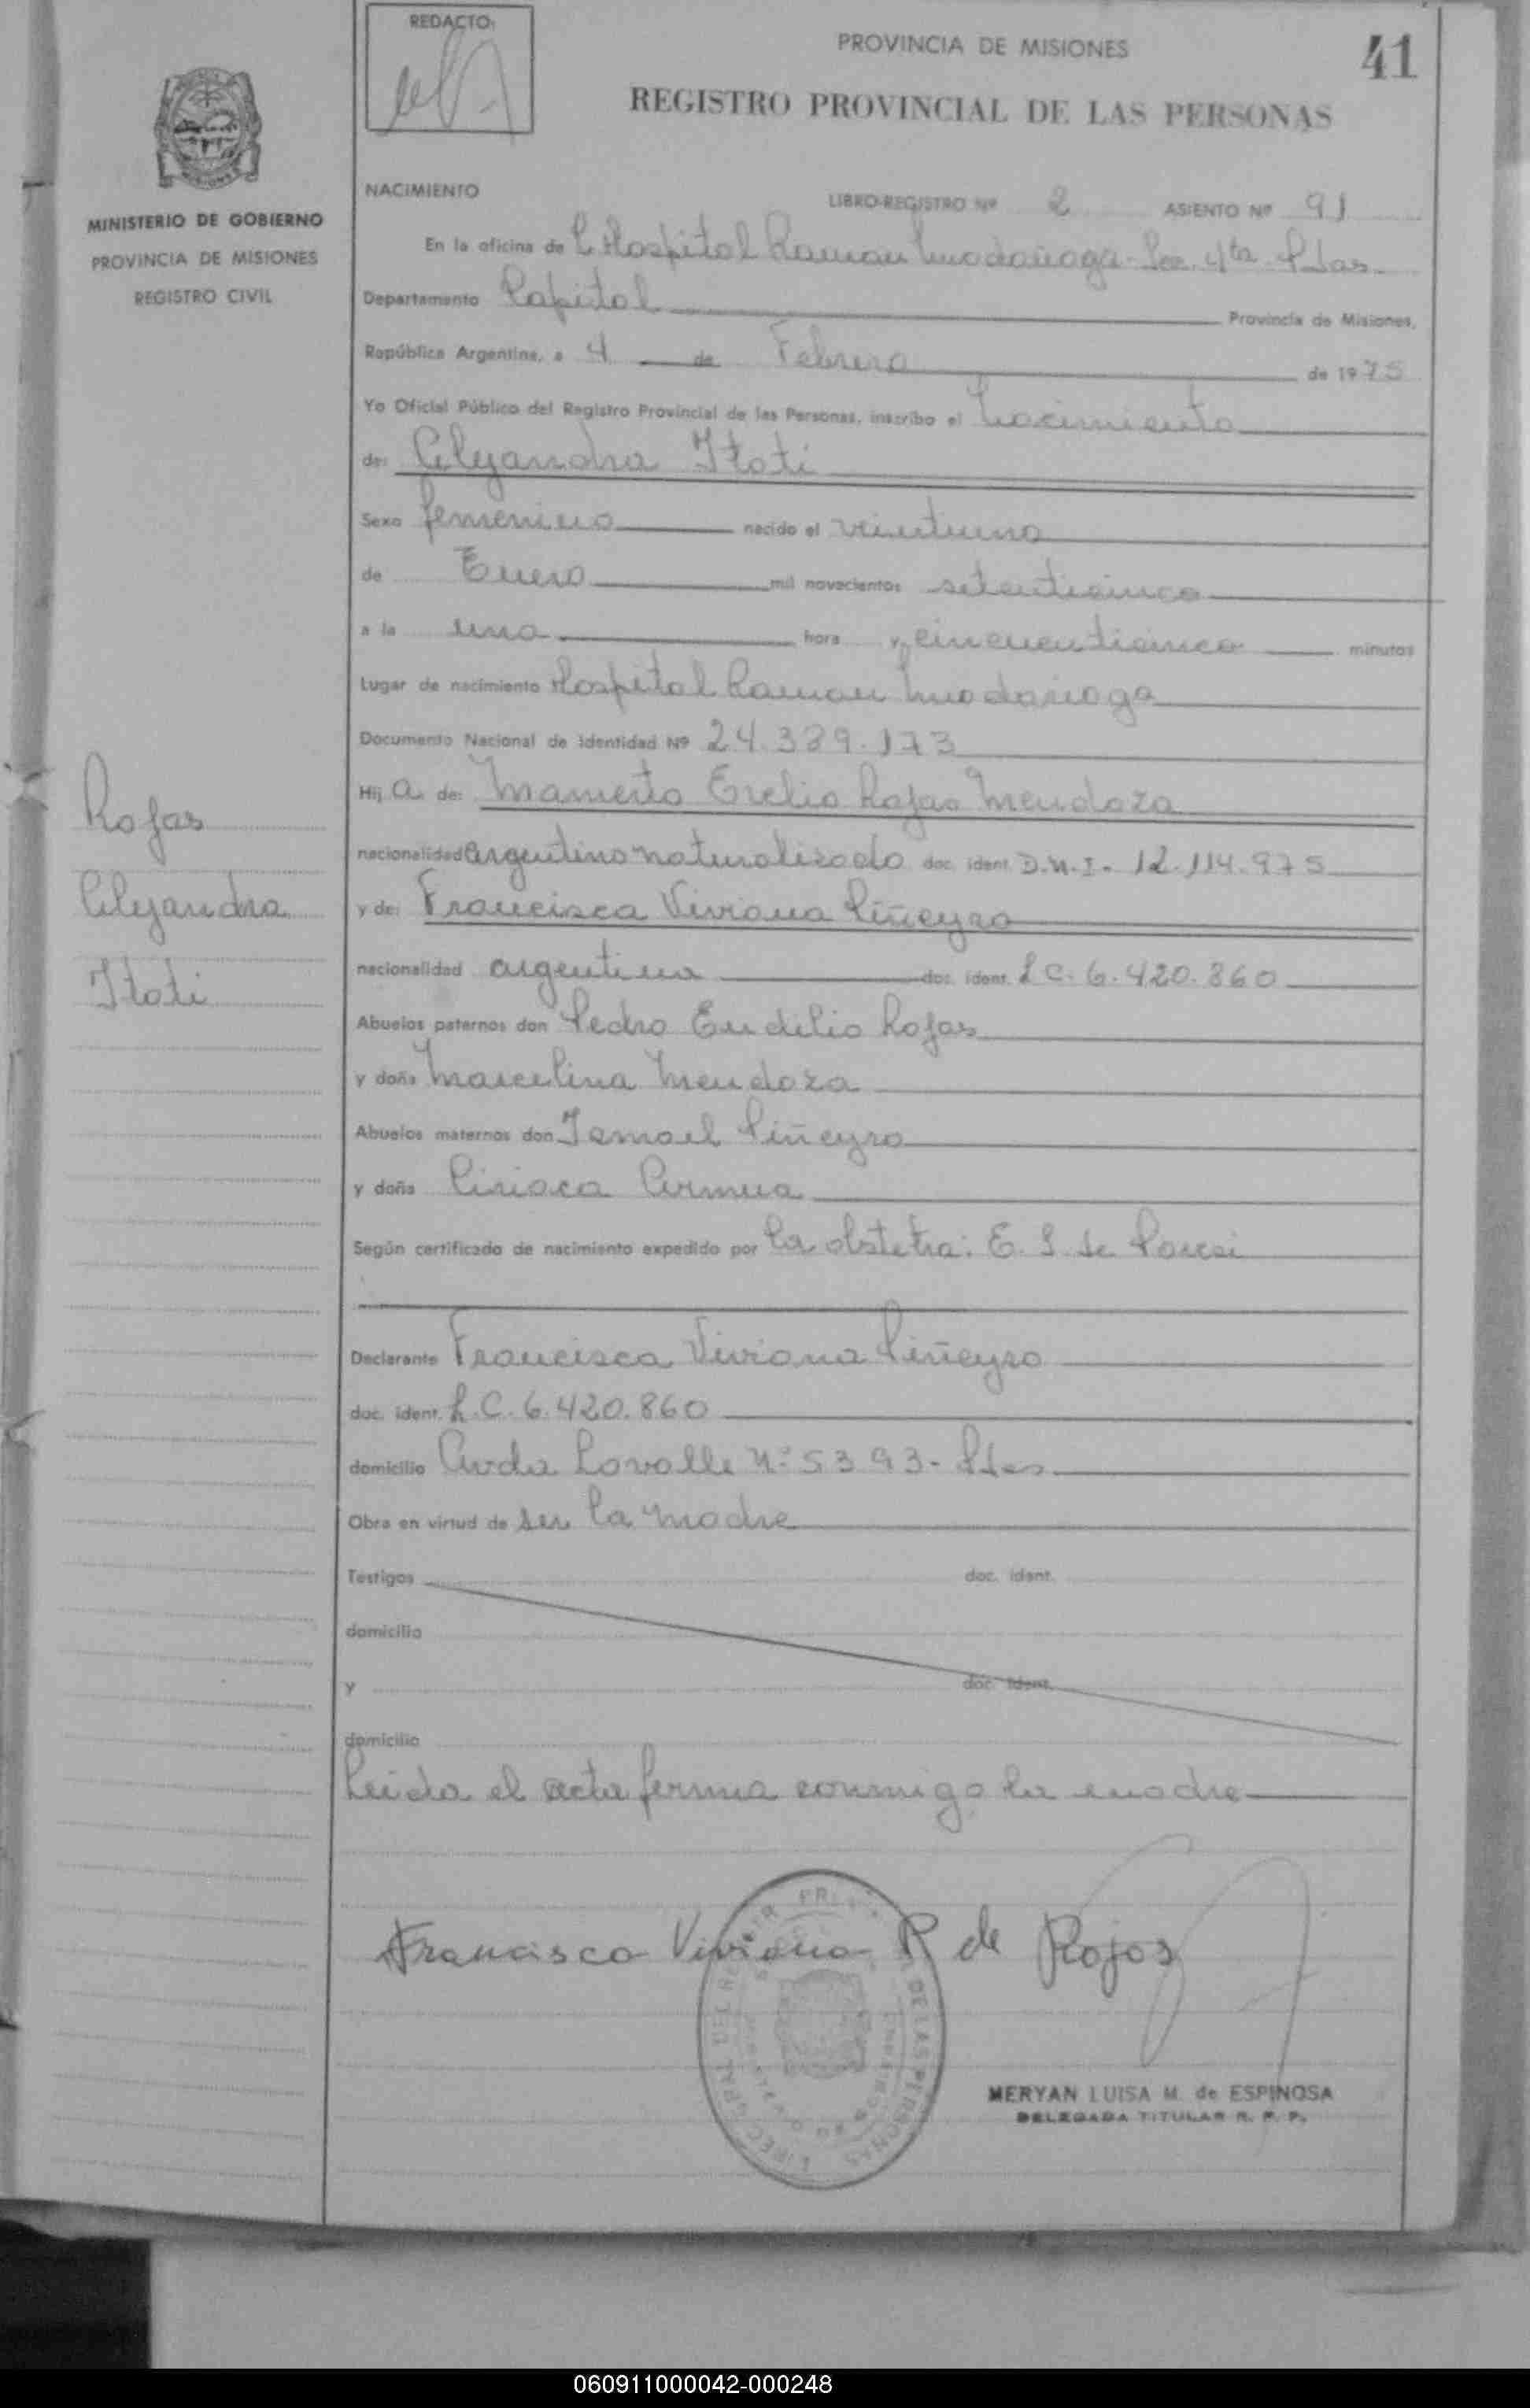 REDACTO:
PROVINCIA DE MISIONES
41
REGISTRO PROVINCIAL DE LAS PERSONAS
MINISTERIO DE GOBIERNO
PROVINCIA DE MISIONES
REGISTRO CIVIL
NACIMIENTO
LIBRO-REGISTRO Nº 2 ASIENTO Nº 91
En la oficina de Hospital Ramon Madariaga - Sec. 4ta Pdas.
Departamento Capital Provincia de Misiones,
República Argentina, a 4 de Febrero de 1975
Yo Oficial Público del Registro Provincial de las Personas, inscribo el Nacimiento
de: Alejandra Itati
Sexo femenino nacido el veintiuno
de Enero mil novecientos setenticinco
a la una hora y cincuenticinco minutos
Lugar de nacimiento Hospital Ramon Madariaga
Documento Nacional de Identidad Nº 24.389.173
Hij a de: Mamerto Evelio Rojas Mendoza
nacionalidad argentino naturalizado doc. ident. D.N.I. 12.114.975
y de: Francisca Viviana Piñeyro
nacionalidad argentina doc. ident. L.C. 6.420.860
Abuelos paternos don Pedro Eudilio Rojas
y doña Marcelina Mendoza
Abuelos maternos don Ismael Piñeyro
y doña Ciriaca Armua
Según certificado de nacimiento expedido por la obstetra: E. S. de
Declarante Francisca Viviana Piñeyro
doc. ident. L.C. 6.420.860
domicilio Avda Lavalle Nº 5393 - Pdas
Obra en virtud de ser la madre
Testigos doc. ident.
domicilio
y doc. ident.
domicilio
Leida el acta firma conmigo la madre
Rojas
Alejandra
Itati
Francisca Viviana P de Rojas
MERYAN LUISA M. de ESPINOSA
DELEGADA TITULAR R. P. P.
060911000042-000248